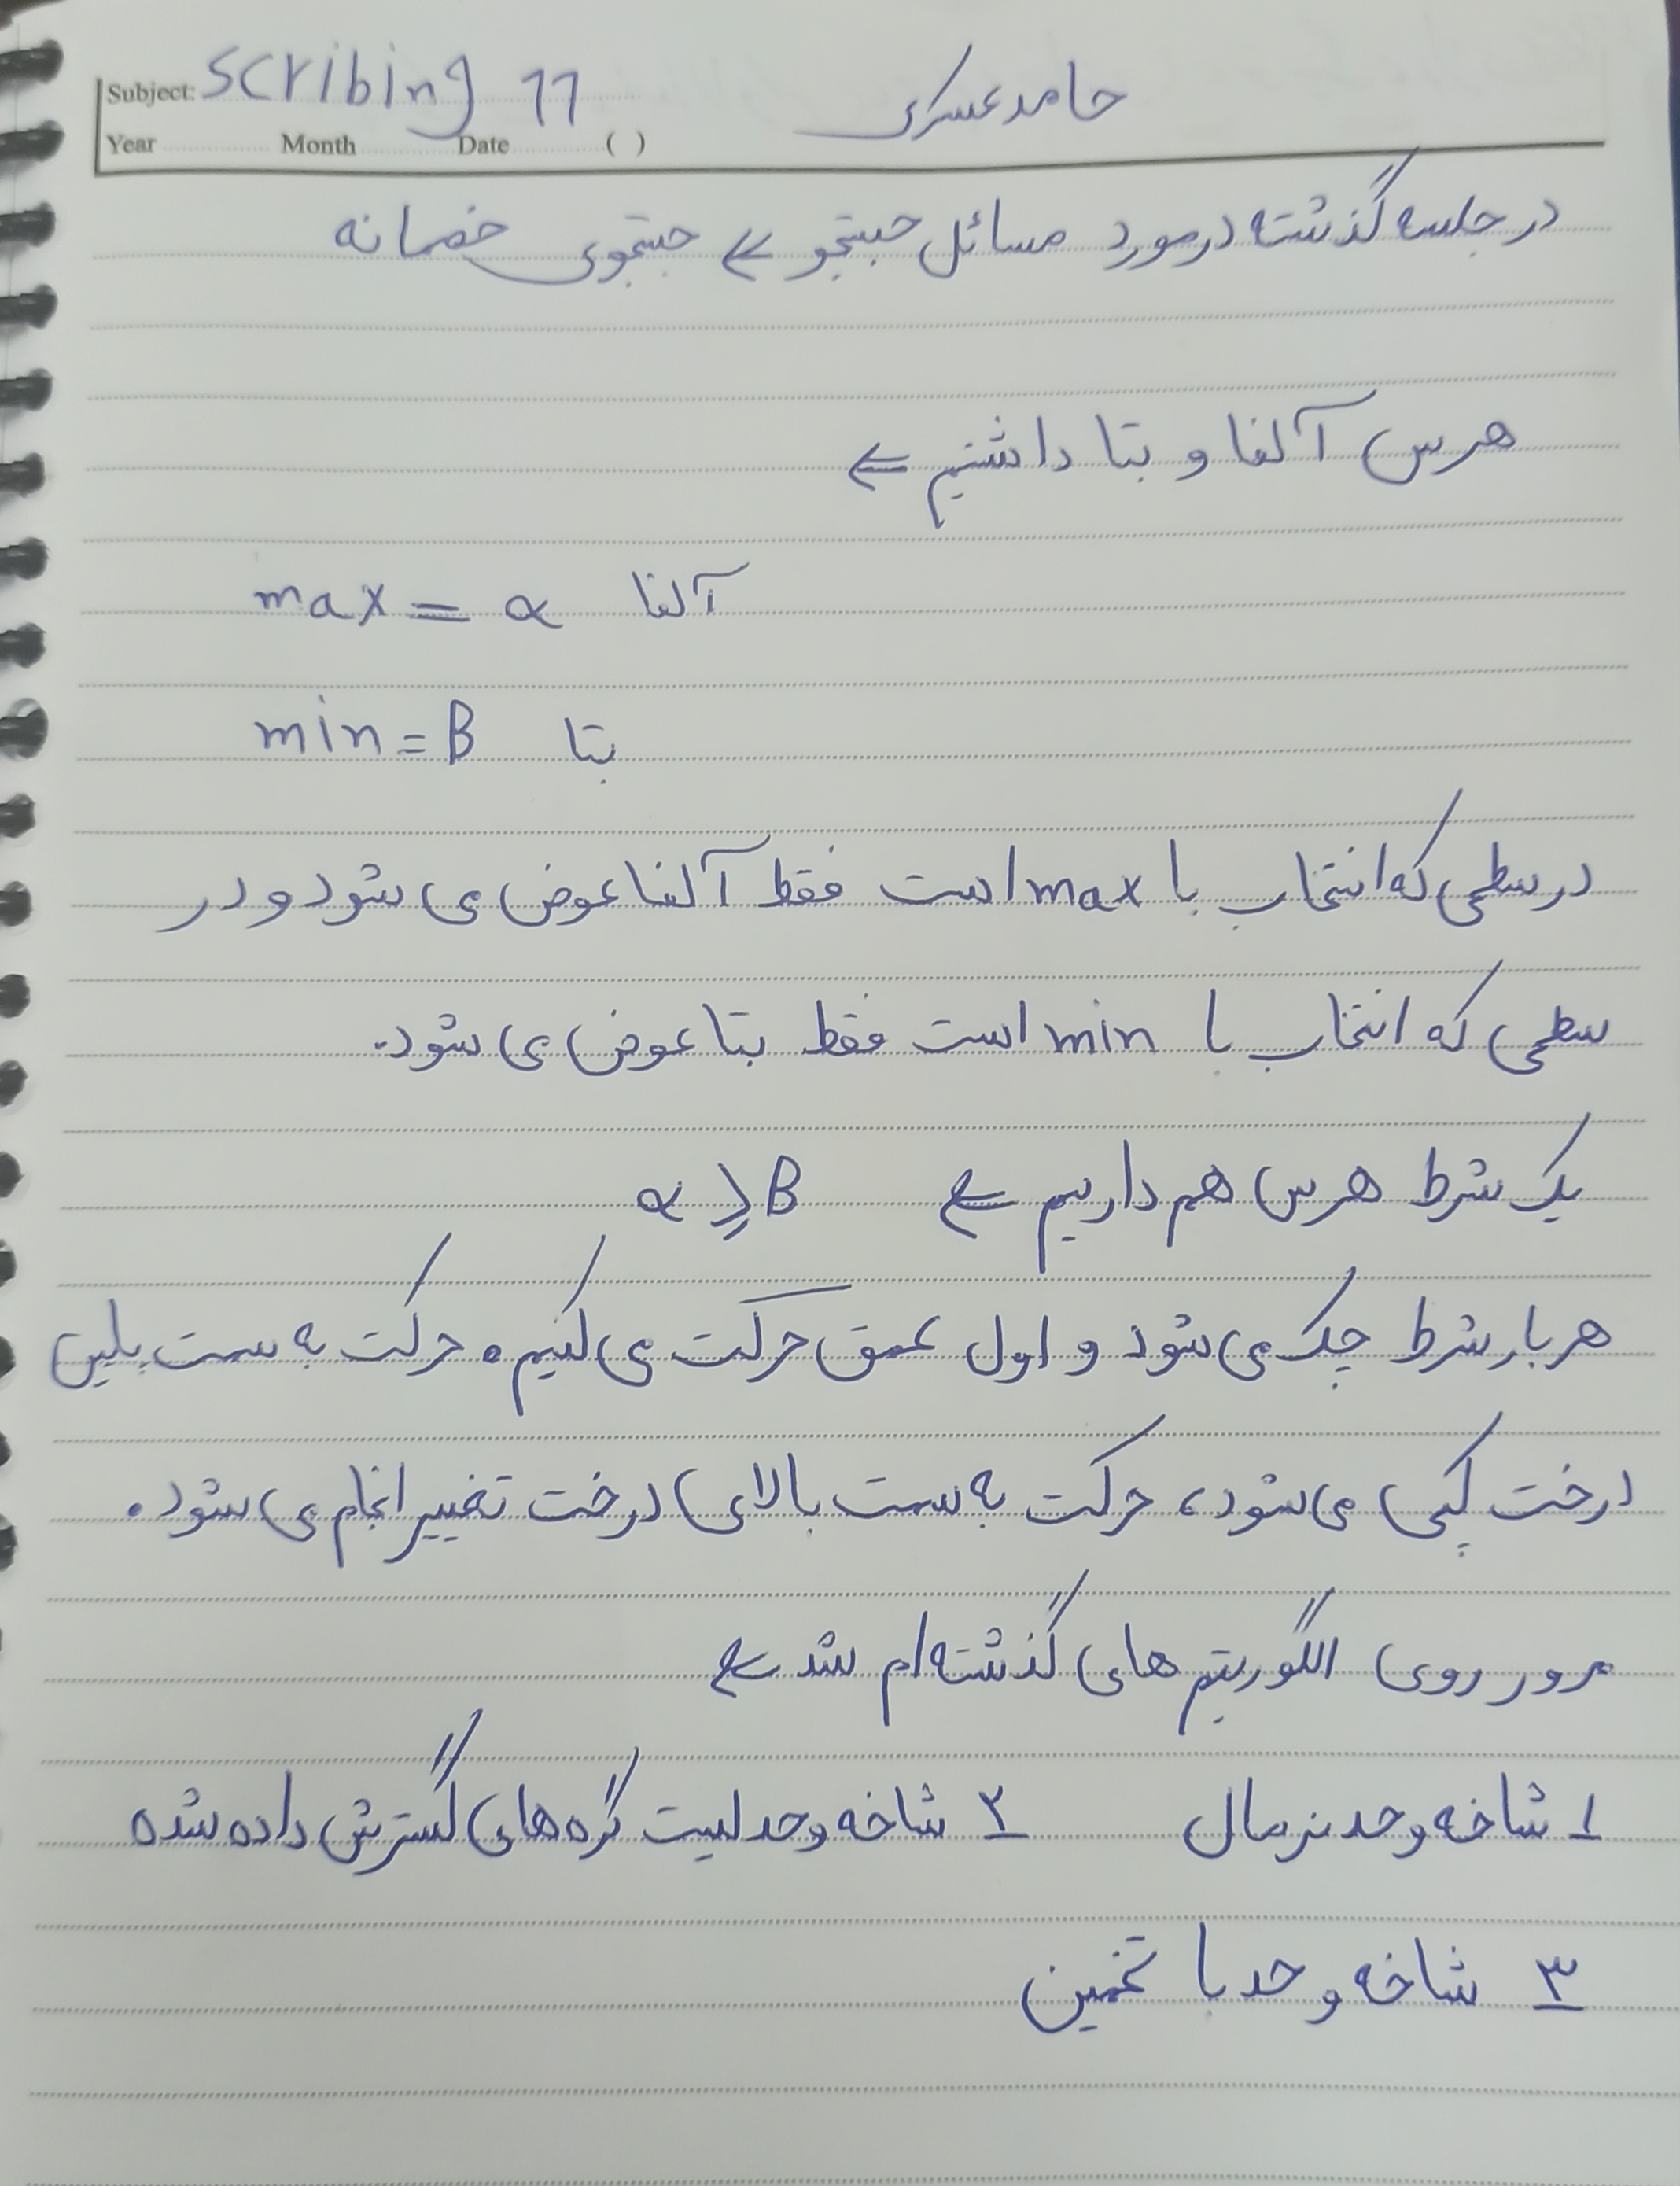 Subject: scribing 11
حامد عسکری
Year Month Date ( )
در جلسه گذشته در مورد مسائل جستجو ⇐ جستجوی خصمانه
هرس آلفا و بتا داشتیم ⇐
آلفا max = α
بتا min = B
در سطحی که انتخاب با max است فقط آلفا عوض می شود و در
سطحی که انتخاب با min است فقط بتا عوض می شود.
یک شرط هرس هم داریم ⇐ α ≥ B
هر بار شرط چک می شود و اول عمق حرکت می کنیم. حرکت به سمت پایین
درخت کپی می شود، حرکت به سمت بالای درخت تغییر انجام می شود.
مرور روی الگوریتم های گذشته ام شد ⇐
۱ شاخه و حد نرمال ۲ شاخه و حد لیست گره های گسترش داده شده
۳ شاخه و حد با تخمین